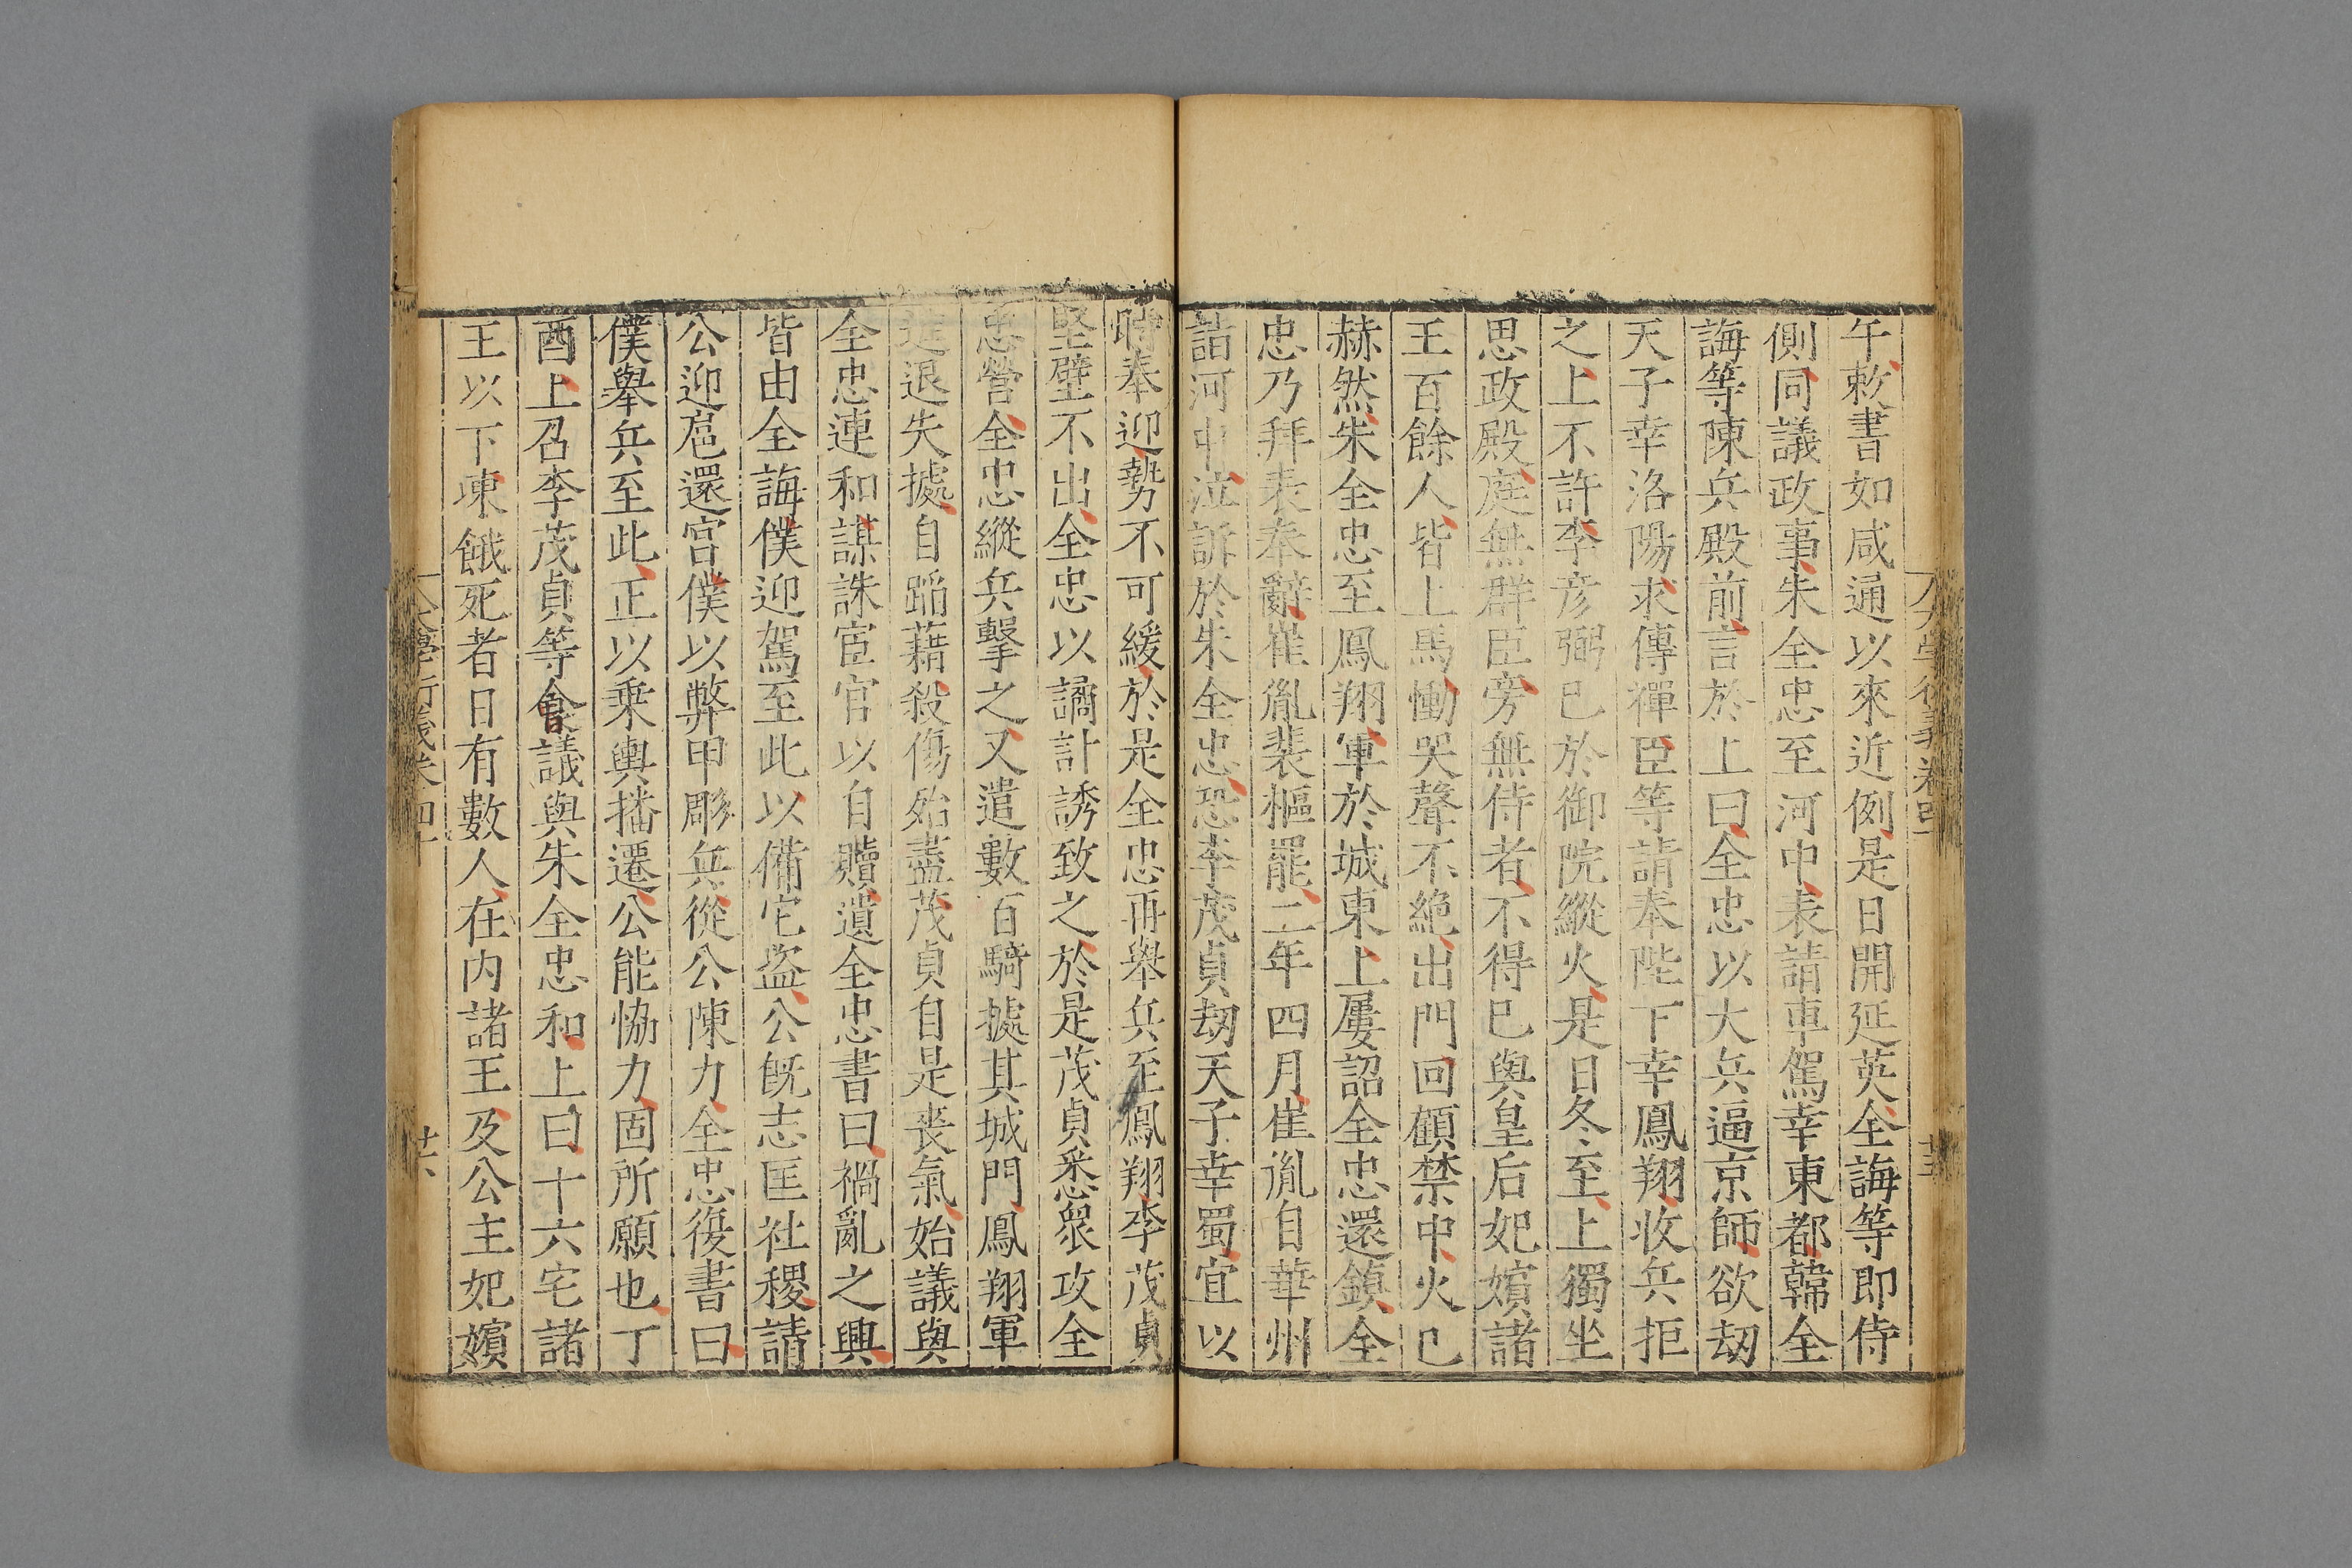 午敕書如咸通以來近例是日開延英全誨等即侍
側同議政事朱全忠至河中表請車駕幸東都韓全
誨等陳兵殿前言於上曰全忠以大兵逼京師欲刼
天子幸洛陽求傳禪臣等請奉陛下幸鳳翔收兵拒
之上不許李彦弼已於御院縱火是日冬至上獨坐
思政殿庭無群臣旁無侍者不得已與皇后妃嬪諸
王百餘人皆上馬慟哭聲不絶出門回顧禁中火已
赫然朱全忠至鳳翔軍於城東上屢詔全忠還鎮全
忠乃拜表奉辭崔胤裴樞罷二年四月崔胤自華州
詣河中泣訴於朱全忠恐李茂貞刼天子幸蜀宜以
時奉迎勢不可緩於是全忠再舉兵至鳳翔李茂貞
堅壁不出全忠以譎計誘致之於是茂貞悉衆攻全
忠營全忠縱兵擊之又遣數百騎據其城門鳳翔軍
進退失據自蹈藉殺傷殆盡茂貞自是喪氣始議與
全忠連和謀誅宦官以自贖遺全忠書曰禍亂之興
皆由全誨僕迎駕至此以備它盜公既志匡社稷請
公迎扈還宮僕以弊甲彫兵從公陳力全忠復書曰
僕舉兵至此正以乗輿播遷公能恊力固所願也丁
酉上召李茂貞等食議與朱全忠和上曰十六宅諸
王以下凍餓死者日有數人在内諸王及公主妃嬪